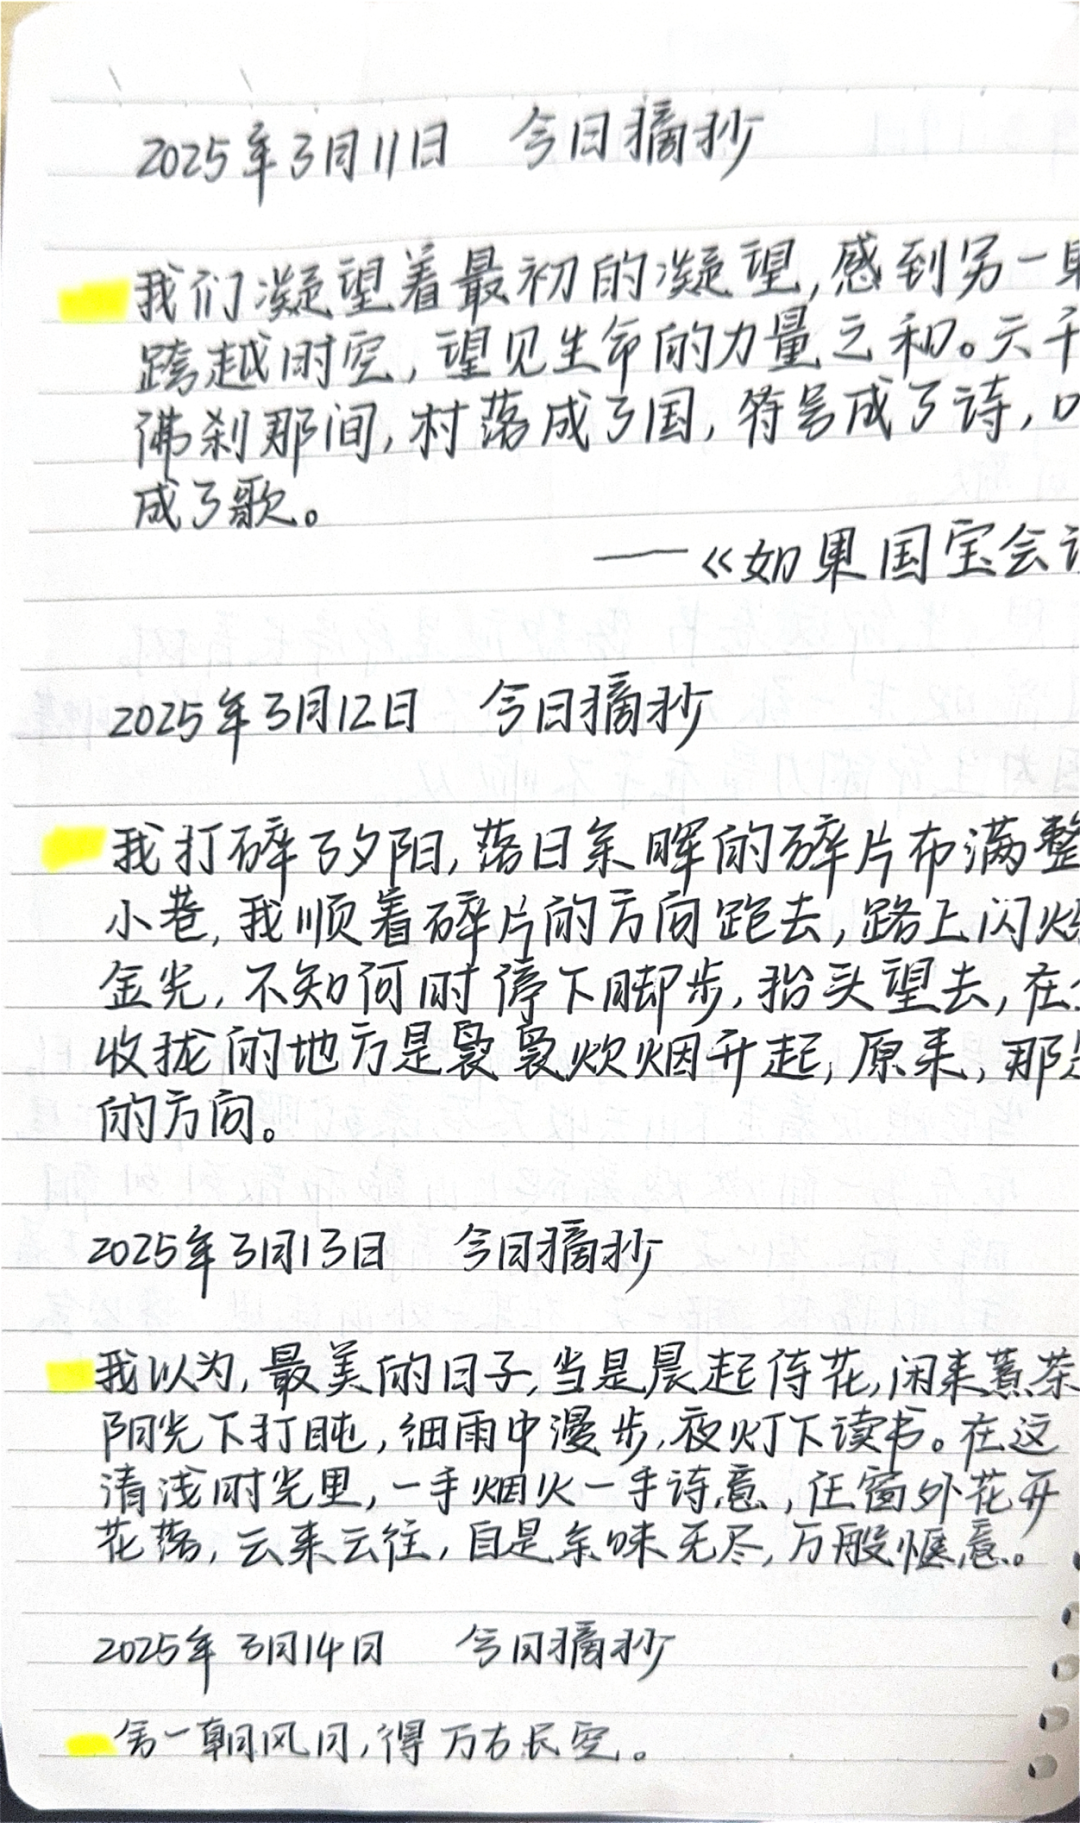 2025年3月11日 今日摘抄
我们凝望着最初的凝望,感到另一
跨越时空,望见生命的力量之和。六千
佛刹那间,村落成了国,符号成了诗,
成了歌。
——《如果国宝会
2025年3月12日 今日摘抄
我打碎了夕阳,落日余晖的碎片布满整
小巷,我顺着碎片的方向跑去,路上闪烁
金光,不知何时停下脚步,抬头望去,在
收拢的地方是袅袅炊烟升起,原来,那是
的方向。
2025年3月13日 今日摘抄
我以为,最美的日子,当是晨起侍花,闲来煮茶
阳光下打盹,细雨中漫步,夜灯下读书。在这
清浅时光里,一手烟火一手诗意,任窗外花开
花落,云来云往,自是余味无尽,万般惬意。
2025年3月14日 今日摘抄
舍一朝风月,得万古长空。